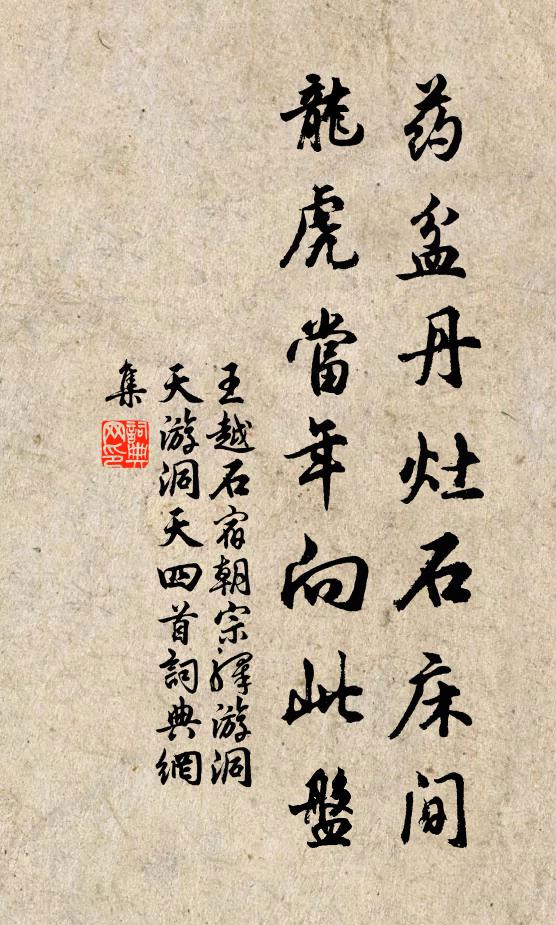 药盆丹灶石床间
龍虎當年向此盤
王越石宿朝宗釋游洞
天游洞天四首詞典網
集
詞典
网印